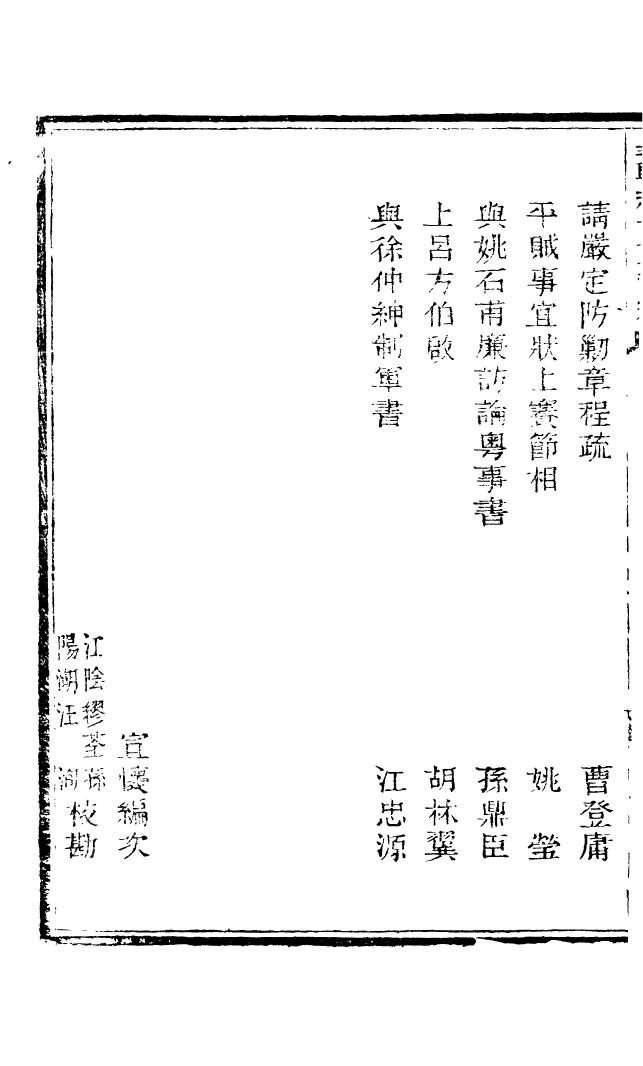 請嚴定防勦章程疏　曹登庸
平賊事宜狀上賽節相　姚瑩
與姚石甫廉訪論粵事書　孫鼎臣
上呂方伯啟　胡林翼
與徐仲紳制軍書　江忠源
宣懷編次
江陰繆荃孫
陽湖汪洵
校勘